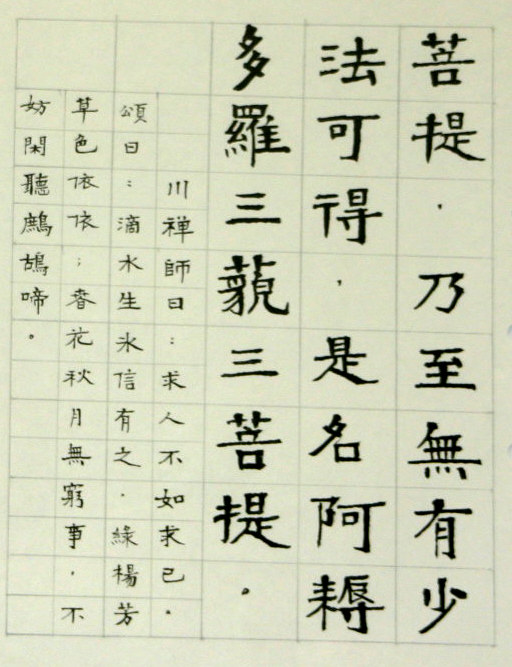 菩提．乃至無有少
法可得，是名阿耨
多羅三藐三菩提．
川禅師曰：求人不如求己．
頌曰：滴水生氷信有之．綠楊芳
草色依依；春花秋月無窮事．不
妨閑聽鷓鴣啼。